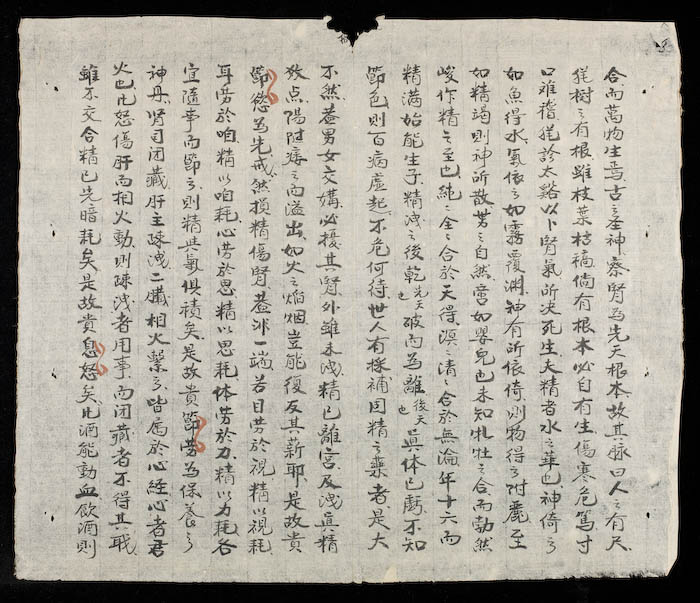 合而萬物生焉古之圣神察腎爲先天根本故其脉曰人之有尺
猶樹之有根雖枝葉枯槁倘有根本必自有生傷寒危篤寸
口难稽猶診太谿以卜腎氣所决死生夫精者水之華也神倚之
如魚得水氣依之如霧覆渊神有所依倚則物得之附麗至
如精竭則神所散業之自然當如嬰児也未知牝牡之合而勃然
峻作精之至也純之全之合於天得溟之清之合於無淪年十六而
精满始能生子精洩之後乾先天也破而爲離後天也眞体已虧不知
節色則百病虚起不危何待世人有採補固精之藥者是大
不然盖男女交媾必擾其腎外雖未洩精已離宮及洩眞精
放点陽随痿之而溢出如火之焰烟豈能復反其薪耶是故貴
節慾爲先戒然损精傷腎盖非一端若目劳於視精以視耗
耳劳於咱精以咱耗心劳於思精以思耗体劳於力精以力耗各
宜隨事而節之則精與氣俱積矣是故貴節劳爲保養之
神丹腎司闭藏肝主疎洩二臓相火繫之皆属於心経心者君
火也凡怒傷肝而相火動則疎洩者用事而闭藏者不得其職
雖不交合精已先暗耗矣是故貴息怒矣凡酒能動血飲酒則